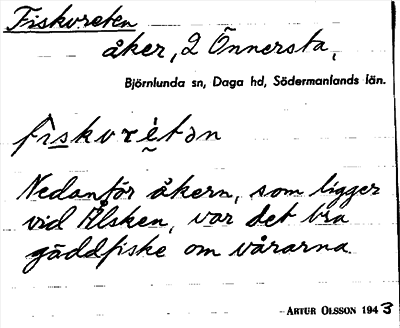 Fiskvreten
åker, 2 Önnersta,
Björnlunda sn, Daga hd, Södermanlands län.
fiskvrètən
Nedanför åkern, som ligger
vid Älsken, var det bra
gäddfiske om vårarna.
ARTUR OLSSON 1943